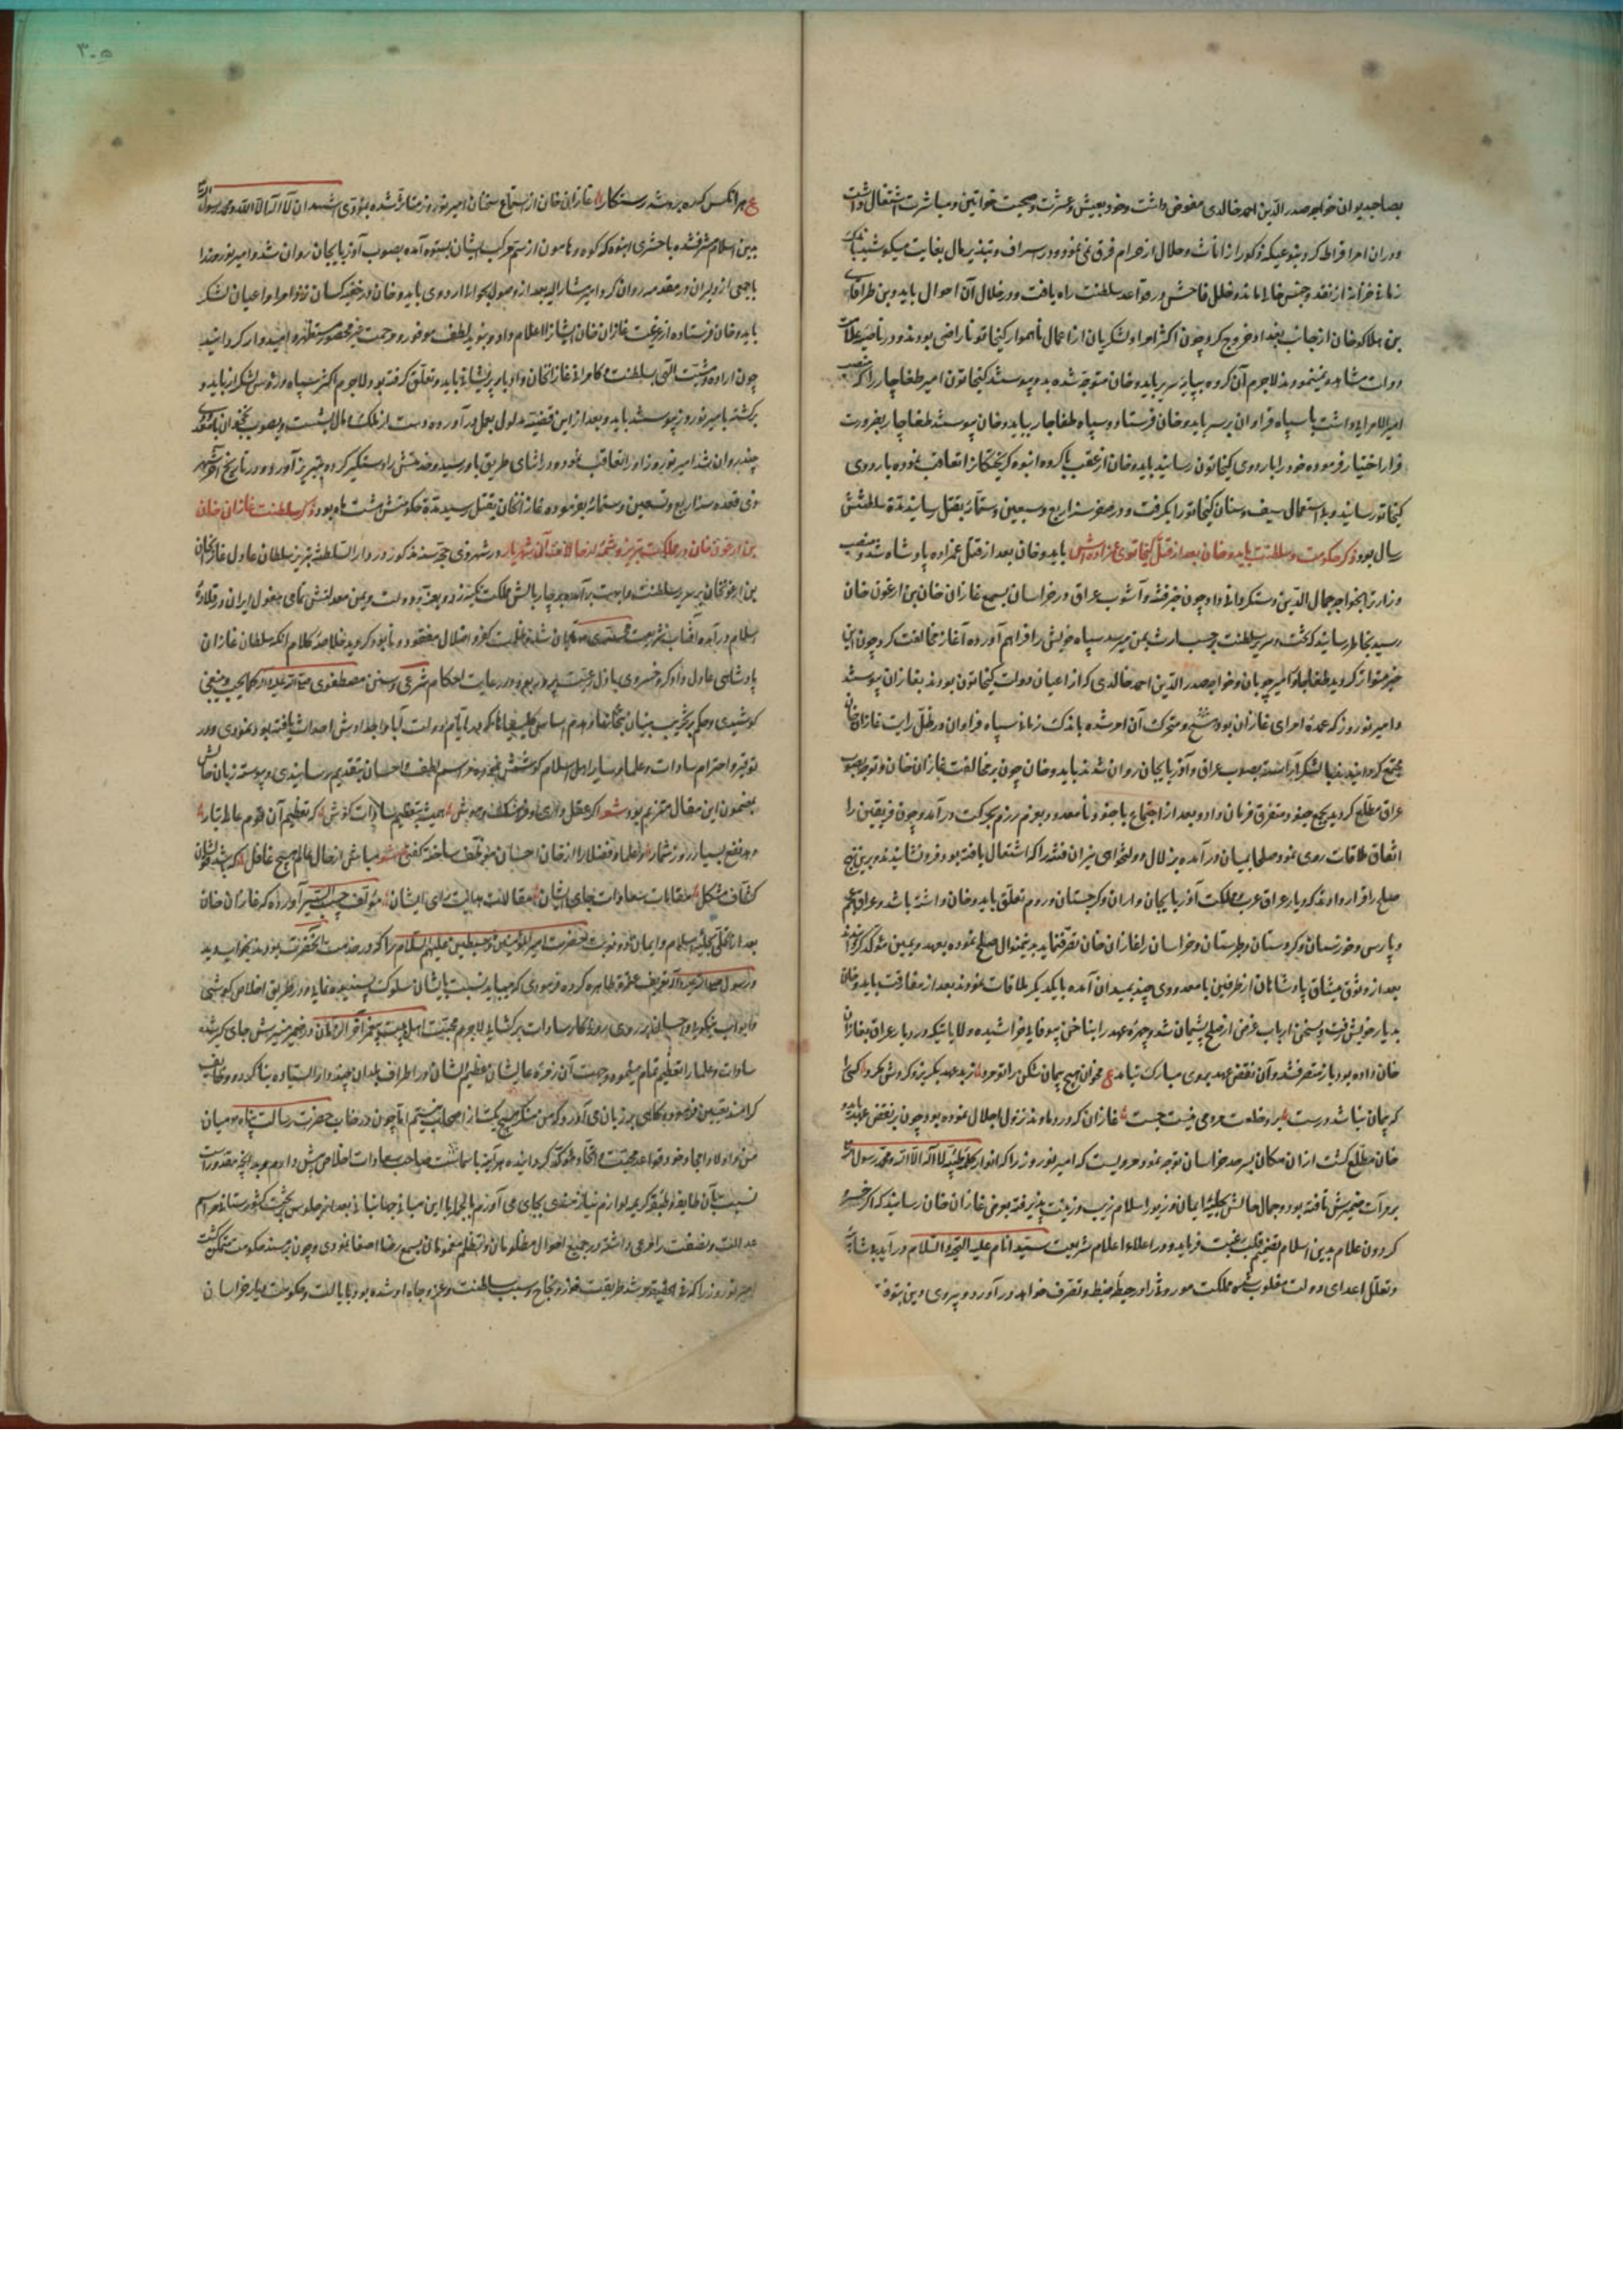 بصاحبدیوان خواجه صدر الدین احمد خالدی مفوض داشت و خود بعیش و عشرت و صحبت خواتین و مباشرت اشتغال داشت
و در ان امر افراط کرد بنوعیکه ذکور از اناث و حلال از حرام فرق نمی نمود و در اسراف و تبذیر مال بغایت میکوشید
زمانی خزانه از نقد و جنس خالی ماند و خلل فاحش در قواعد سلطنت راه یافت و در خلال آن احوال بایدو بن طراغای
بن هلاکو خان از جانب بغداد خروج کرد چون اکثر امرا و لشکریان از اعمال ناهموار کیخاتو ناراضی بودند و در ناصیه علامات
دولت مشاهده مینمودند لاجرم آن کروه بپایه سریر بایدو خان متوجه شده بدو پیوستند کیخاتون امیر طغاجار را که منصب
امیر الامرایی داشت با سپاه فراوان بر سر بایدو خان فرستاد و سپاه طغاجار ببایدو خان پیوستند طغاجار بضرورت
فرار اختیار فرموده خود را باردوی کیخاتون رسانید بایدو خان از عقب با کروه انبوه کریختکانرا تعاقب نموده باردوی
کیخاتو رسانید و باستعمال سیف و سنان کیخاتو را بکرفت و در صفر سنه اربع و تسعین و ستمائه بقتل رسانید مدة سلطنتش
سال بود ذکر حکومت و سلطنت بایدو خان بعد از قتل کیخاتوی عمزاده‌اش بایدو خان بعد از قتل عمزاده پادشاه شد و منصب
وزارت بخواجه جمال الدین دستکردانی داد و چون خبر فتنه و آشوب عراق در خراسان بسمع غازان خان بن ارغون خان
رسید بخاطر رسانید که تخت و سریر سلطنت بر حسب ارث بمن میرسد سپاه خویش را فراهم آورده آغاز مخالفت کرد چون این
خبر متواتر کردید طغاجار و امیر چوپان و خواجه صدر الدین احمد خالدی که از اعیان دولت کیخاتون بودند بغازان پیوستند
و امیر نوروز که عمدهٔ امرای غازان بود و محرک آن امر شده باندک زمانی سپاه فراوان در ظل رایت غازان خان
مجتمع کردانید و با لشکر آراسته بصوب عراق و آذربایجان روان شدند بایدو خان چون بر مخالفت غازان خان و توجه بصوب
عراق مطلع کردید بجمع جنود متفرق فرمان داد و بعد از اجتماع با جنود نامعدود بعزم رزم بحرکت درآمد و چون فریقین را
اتفاق ملاقات روی نمود صلحا بمیان درآمده بزلال دولتخواهی نیران فتنه را که اشتعال یافته بود فرو نشاندند و برین نهج
صلح را قرار دادند که دیار عراق عرب و مملکت آذربایجان و اران و کرجستان و روم تعلق ببایدو خان داشته باشد و عراق عجم
و پارس و خوزستان و کردستان و طبرستان و خراسان را غازان خان تصرف نماید بدینمنوال صلح نموده بعهد و یمین مؤکد کردانیدند
بعد از وثوق میثاق پادشاهان از طرفین با معدودی چند بمیدان آمده با یکدیکر ملاقات نمودند بعد از مفارقت بایدو خان
بدیار خویش رفت و بسخن ارباب غرض از صلح پشیمان شد و چهرهٔ عهد را بناخن بیوفایی خراشیده ولایاتیکه در دیار عراق بغازان
خان داده بود باز متصرف شد و آن نقض عهد بروی مبارک نیامد
که پیمان نباشد درست غازان که در دماوند نزول اجلال نموده بود چون بر نقض عهد بایدو
خان مطلع کشت از ان مکان بسرحد خراسان توجه نمود و مرویست که امیر نوروز را که انوار کلمه طیبه لا اله الا الله محمد رسول الله
بر مرآت ضمیرش تافته بود و جمال حالش بحلیهٔ ایمان و زیور اسلام زیب و زینت پذیرفته بعرض غازان خان رسانید که اکر خسرو
کردون غلام بدین اسلام بصمیم قلب رغبت فرماید و در اعلاء اعلام شریعت سید انام علیه التحیة و السلام درآید
و تعلل اعدای دولت مغلوب شده مملکت موروثی را در حیطهٔ ضبط و تصرف خواهد درآورد و پیروی دین
۳۰۵
ع هر انکس که بد ره شد رستکار غازان خان از استماع سخنان امیر نوروز متاثر شده بمؤدی اشهد ان لا اله الا الله و محمد رسول الله
بدین اسلام مشرف شده با حشری انبوه که کوه و هامون از سم مرکب ایشان بستوه آمده بصوب آذربایجان روان شد و امیر نوروز را
با جمعی از دلیران در مقدمه روان کرد امیر مشارالیه بعد از وصول بحوالی اردوی بایدو خان در خفیه کسان نزد امرا و اعیان لشکر
بایدو خان فرستاده از عزیمت غازان خان ایشانرا اعلام داد و بنوید لطف موفور و مرحمت غیر محصور مستظهر و امیدوار کردانید
چون اراده و مشیت الهی بسلطنت و کامرانی غازانخان و ادبار و پریشانی بایدو تعلق کرفته بود لاجرم اکثر سپاه و رؤس لشکر از بایدو
برکشته بامیر نوروز پیوستند بایدو بعد از این قضیه مدلول بعمل درآورده دست از ملک و مال بشست و بصوب نخجوان با معدودی
چند روان شد امیر نوروز او را تعاقب نموده در اثنای طریق باو رسید و خدمتش را دستکیر کرده بتبریز آورد و در تاریخ آخر شهر
ذی قعده سنه اربع و تسعین و ستمائه بفرموده غازانخان بقتل رسید مدة حکومتش هشت ماه بود ذکر سلطنت غازان خان
بن ارغون خان در مملکت تبریز و شمه از حالات آن شهریار در شهر ذی حجه سنه مذکور در دار السلطنه تبریز سلطان عادل غازانخان
بن ارغونخان بر سریر سلطنت و ابهت برآمده بر چار بالش مملکت تکیه زد و بیمن معدلتش تمامی مغول ایران در قلادهٔ
اسلام درآمده آفتاب شریعت محمدی تابان شد و ظلمت کفر و ضلال مفقود و نابود کردید خلاصهٔ کلام انکه سلطان غازان
پادشاهی عادل دادکر و خسروی باذل رعیت پرور بود و در رعایت احکام شرعی و سنن مصطفوی صلی الله علیه و آله کما یجب و ینبغی
کوشیدی و حکم بتخریب بنیان بتخانها و هدم اساس کلیساها که در ایام دولت آبا و اجدادش احداث یافته بود نمودی و در
توقیر و احترام سادات و علما و سایر اهل اسلام کوشش نموده مراسم لطف و احسان بتقدیم رسانیدی و پیوسته زبان حالش
بمضمون این مقال مترنم بود شعر اکر عقل داری و فرهنک و هوش همیشه بتعظیم سادات کوش که تعظیم آن قوم عالی تبار
دهد نفع بسیار روز شمار و علما و فضلا را از خان احسان موظف ساخته کفتی شعر مباش از حال عالم هیچ غافل که باشد
کشاف مشکل مقامات سعادات جای ایشان مقالات هدایت رای ایشان مؤلف حبیب السیر آورده که غازان خان
بعد از تحلی بحلیهٔ اسلام و ایمان دو نوبت حضرت امیر المؤمنین و سبطین علیهم السلام را که در خدمت آنحضرت بودند بخواب دید
و رسول صلی الله علیه و آله تعریف عترت طاهره کرده فرمودی که میباید نسبت بایشان سلوک پسندیده نمایی و در طریق اخلاص کوشی
و ابواب نیکویی و احسان بر روی روزکار سادات برکشایی لاجرم محبت اهل بیت پیغمبر آخر الزمان در ضمیر منیرش جای کیر شد
سادات و علما را تعظیم تمام مینمود و بجهت آن زمرهٔ عالیشان عظیم الشان در اطراف بلدان چند دار السیاده بنا کرد و وظایف
کرامند تعیین فرمود و کاهی بر زبان می آورد که من منکر هیچ یک از اصحاب نیستم اما چون در خواب حضرت رسالت پناه میان
من و اولاد امجاد خود قواعد محبت و اتحاد مؤکد کردانیده هر آینه با صاحب سعادات اخلاص بیش دارم
نسبت بآن طایفه و طبقه کریمه لوازم نیازمندی بجای می آورم بالجمله این جهانبانی بعد از جلوس بر تخت کشورستانی مراسم
عدالت و نصفت را مرعی داشته و در جمیع احوال مظلومان و تظلم مغمومان بسمع رضا اصغا نمودی و چون بر مسند حکومت متمکن کشت
امیر نوروز را که فی الحقیقه مرشد طریقت فوز و نجاح و سبب سلطنت و عز و جاه او شده بود بایالت و حکومت دیار خراسان